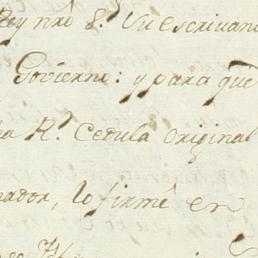 Rey nrõ S.r Un escrivano
Govierno: y para que
R.l Cedula original
nador, lo firmè en